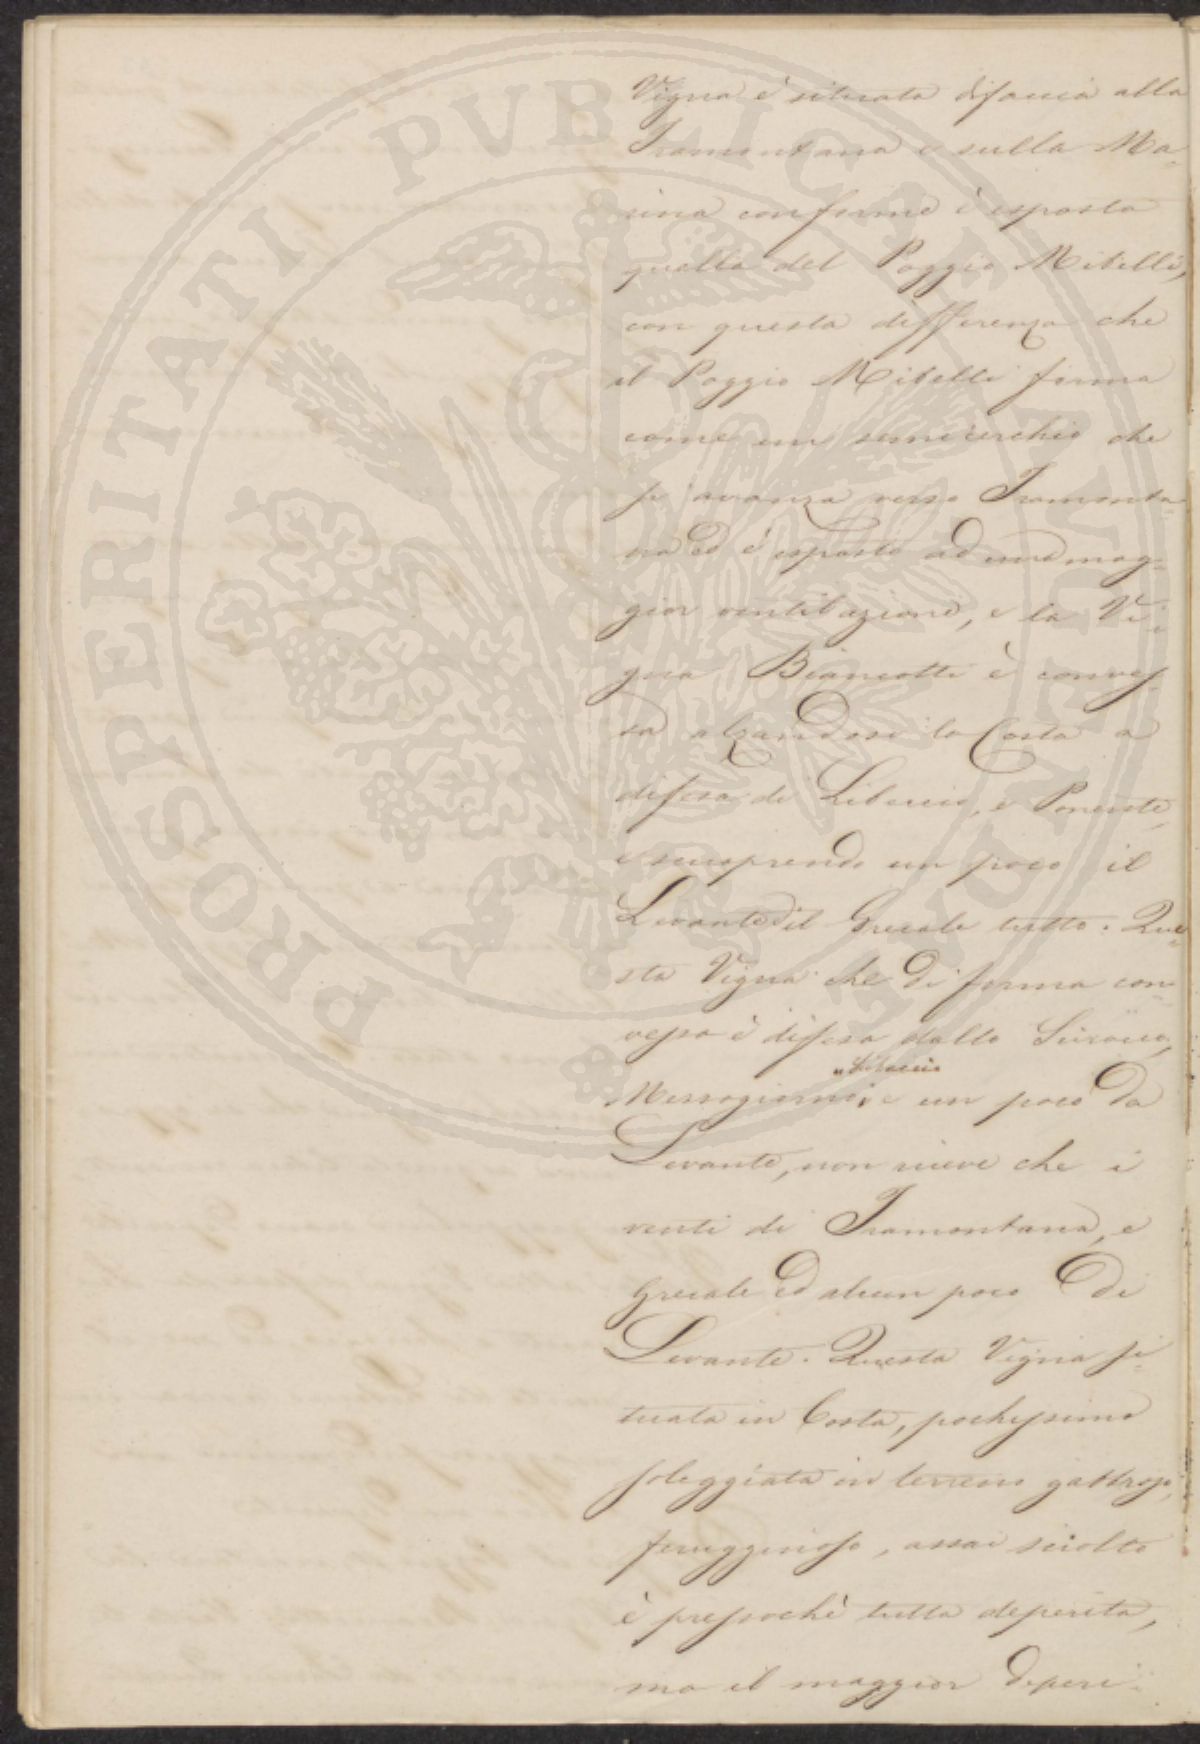 Vigna è situata difaccia alla
Tramontana e sulla Ma-
rina conforme è esposta
quella del Poggio Mitelli,
con questa differenza che
il Poggio Mitelli forma
come un semicerchio che
si avanza verso Tramonta-
na ed è esposto ad una mag-
gior ventilazione, e la Vi-
gna Biancotti è conves-
sa alzandosi la Costa a
difesa di Libeccio, e Ponente,
e scuoprendo un poco il
Levante ed il Grecale tutto. Que-
sta Vigna che di forma con-
vessa è difesa dallo Sirocco,
Mezzogiorno, Libeccio e un poco da
Levante, non riceve che i
venti di Tramontana, e
Grecale ed alcun poco di
Levante. Questa Vigna si-
tuata in Costa, pochissimo
soleggiata in terreno
ferruginoso, assai sciolto
è pressochè tutta deperita,
ma il maggior deperi-
PROSPERITATI PVBLICAE AVGENDAE